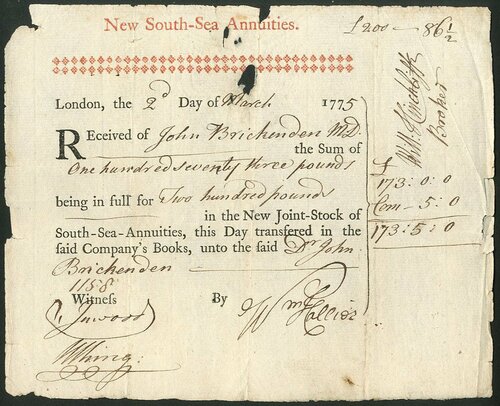 New South-Sea Annuities.
£200 — 86 1/2
London, the 2d Day of March 1775
Received of John Brickenden M.D.
the Sum of
One hundred seventy three pounds
being in full for Two hundred pounds
in the New Joint-Stock of
South-Sea-Annuities, this Day transfered in the
said Company's Books, unto the said Dr John
Brickenden
1158
Witness By Wm Collier
Inwood
Broker
£
173 : 0 : 0
Com — 5 : 0
173 : 5 : 0